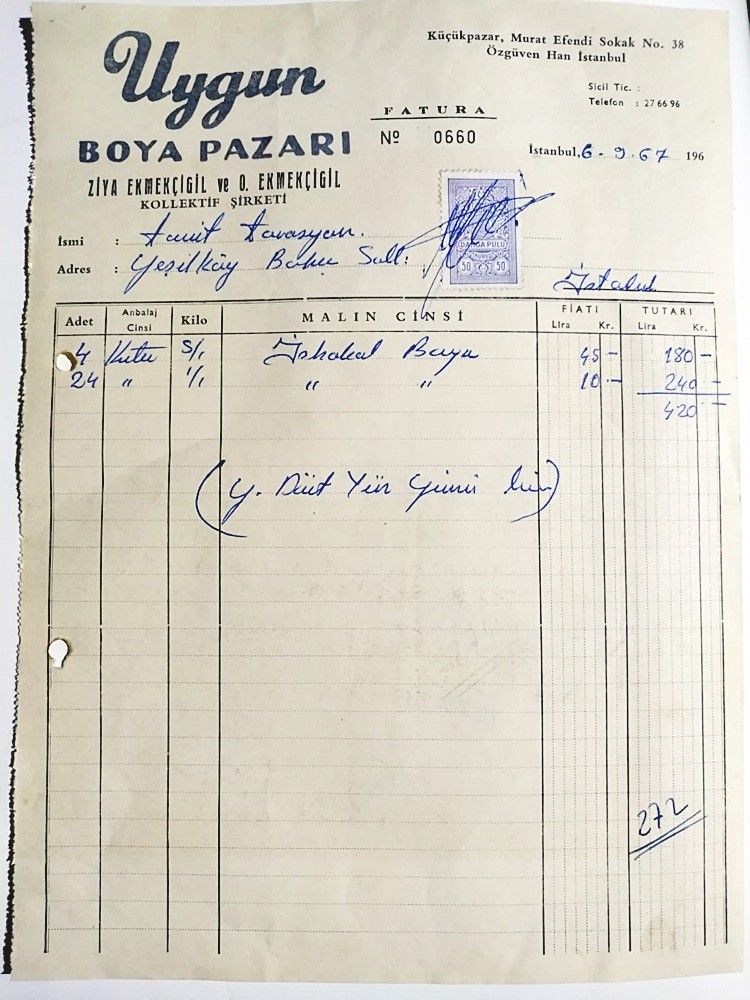 Uygun
BOYA PAZARI
ZİYA EKMEKÇİGİL ve O. EKMEKÇİGİL
KOLLEKTİF ŞİRKETİ
Küçükpazar, Murat Efendi Sokak No. 38
Özgüven Han İstanbul
Sicil Tic. :
Telefon : 27 66 96
FATURA
Nº 0660
İstanbul, 6-9-67 196
DAMGA PULU
50 50
İsmi :
Adres : Yeşilköy
İstanbul
Adet Anbalaj Cinsi Kilo MALIN CİNSİ FİATI Lira Kr. TUTARI Lira Kr.
4 Kutu 5/1 Boya 45 - 180 -
24 " 1/1 " " 10 - 240 -
420 -
(Y. Dört Yüz Yirmi lira)
272